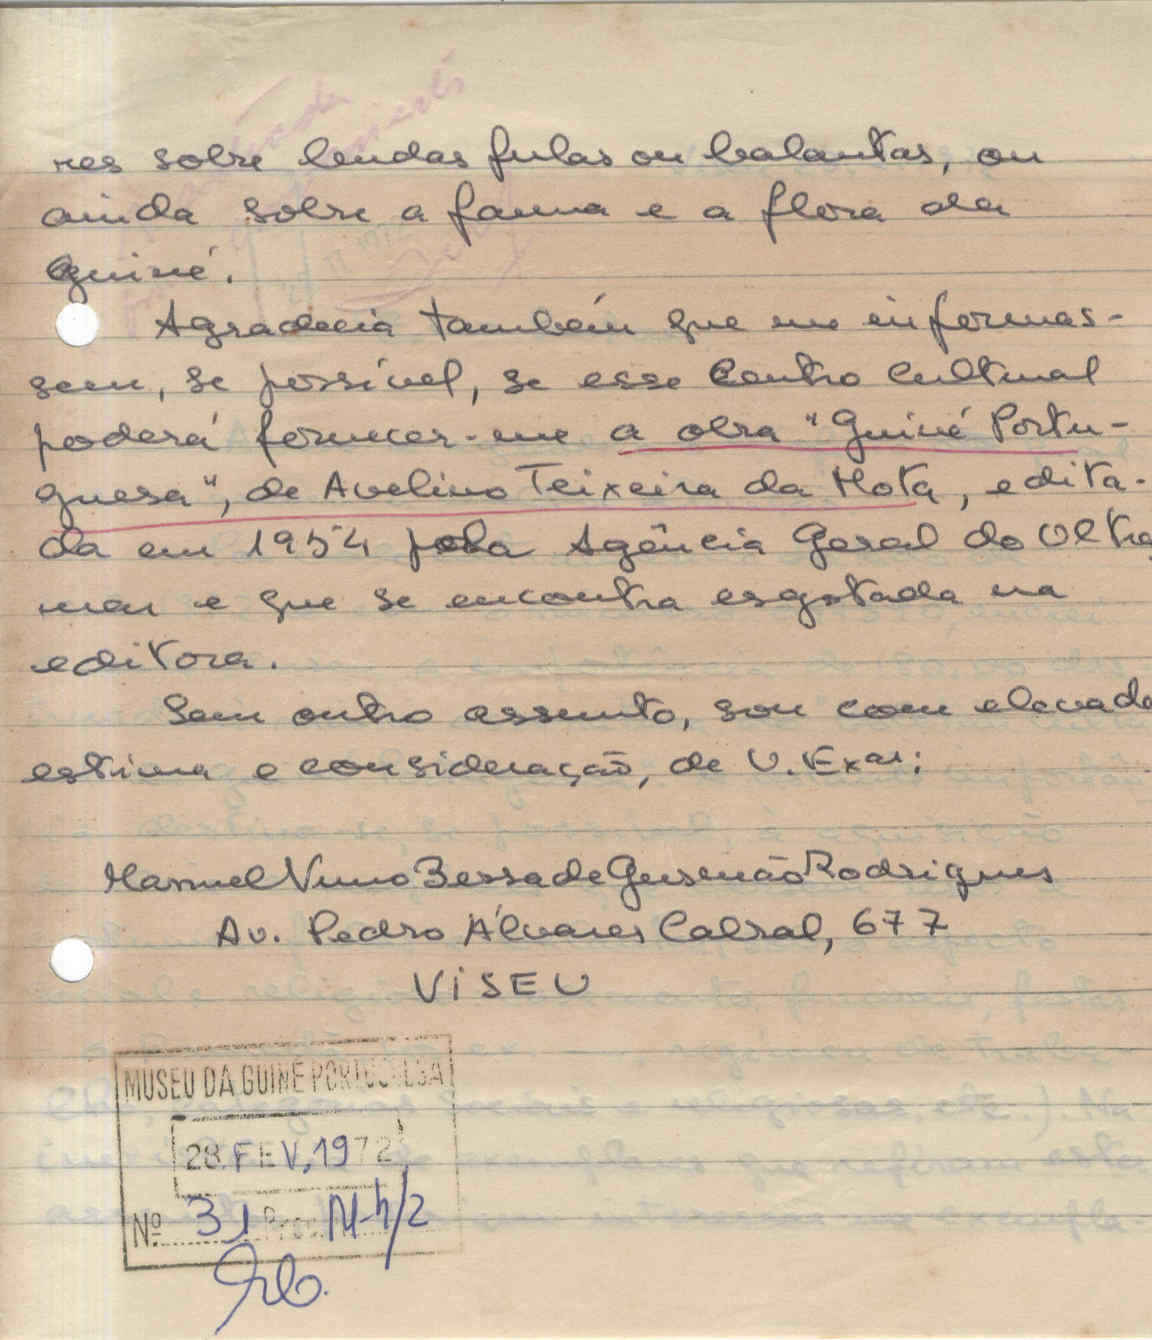 res sobre lendas fulas ou balantas, ou
ainda sobre a fauna e a flora da
Guiné.
Agradecia também que me informas-
sem, se possível, se esse Centro Cultural
poderá fornecer-me a obra "Guiné Portu-
guesa", de Avelino Teixeira da Mota, edita-
da em 1954 pela Agência Geral do Ultra
mar e que se encontra esgotada na
editora.
Sem outro assunto, sou com elevada
estima e consideração, de V. Exas:
Manuel Nuno Bessa de Gusmão Rodrigues
Av. Pedro Álvares Cabral, 677
VISEU
MUSEU DA GUINÉ PORTUGUESA
28. FEV. 1972
Nº 31 Proc. M-h/2